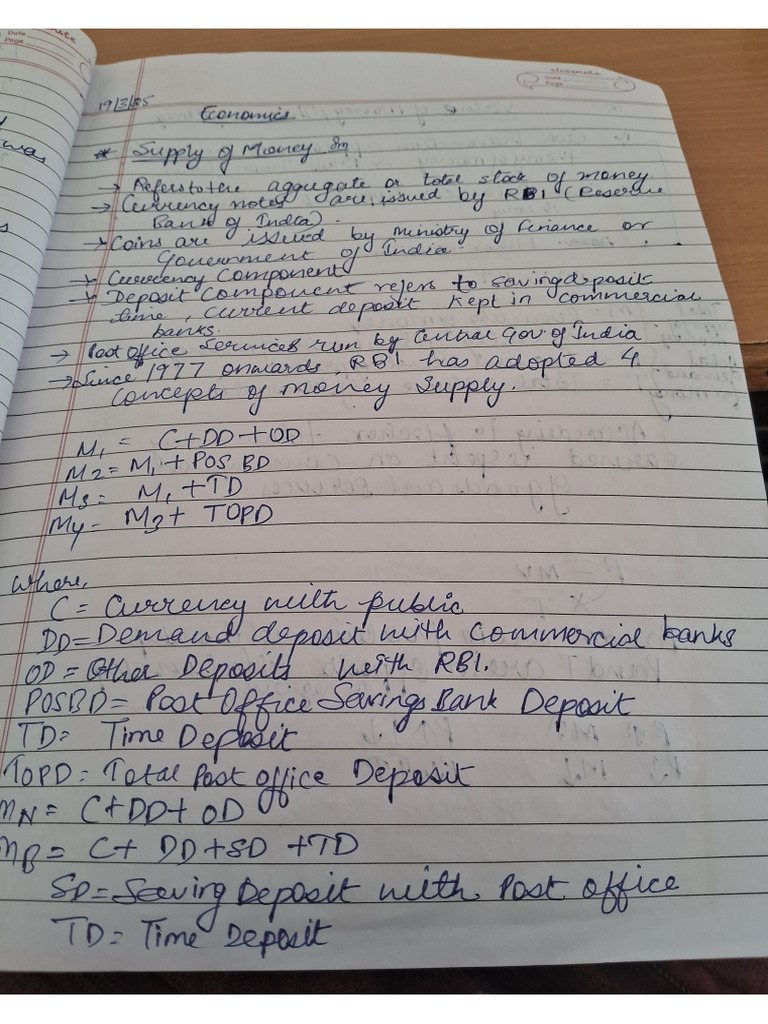 classmate
Date
Page
was
19/3/25
Economics
* Supply of Money
→ Refers to the aggregate or total stock of money
→ Currency notes are issued by RBI (Reserve
Bank of India).
→ Coins are issued by ministry of Finance or
Government of India.
→ Currency Component
→ Deposit Component refers to saving deposit
time, current deposit kept in commercial
banks.
→ Post office Services run by Central Gov of India
→ Since 1977 onwards, RBI has adopted 4
concepts of money Supply.
M1 = C+DD+OD
M2 = M1 + POSBD
M3 = M1 + TD
M4 = M3 + TOPD
where,
C = Currency with public
DD = Demand deposit with commercial banks
OD = Other Deposits with RBI.
POSBD = Post Office Savings Bank Deposit
TD = Time Deposit
TOPD = Total Post office Deposit
MN = C+DD+OD
MB = C+ DD+SD +TD
SD = Saving Deposit with Post office
TD = Time Deposit